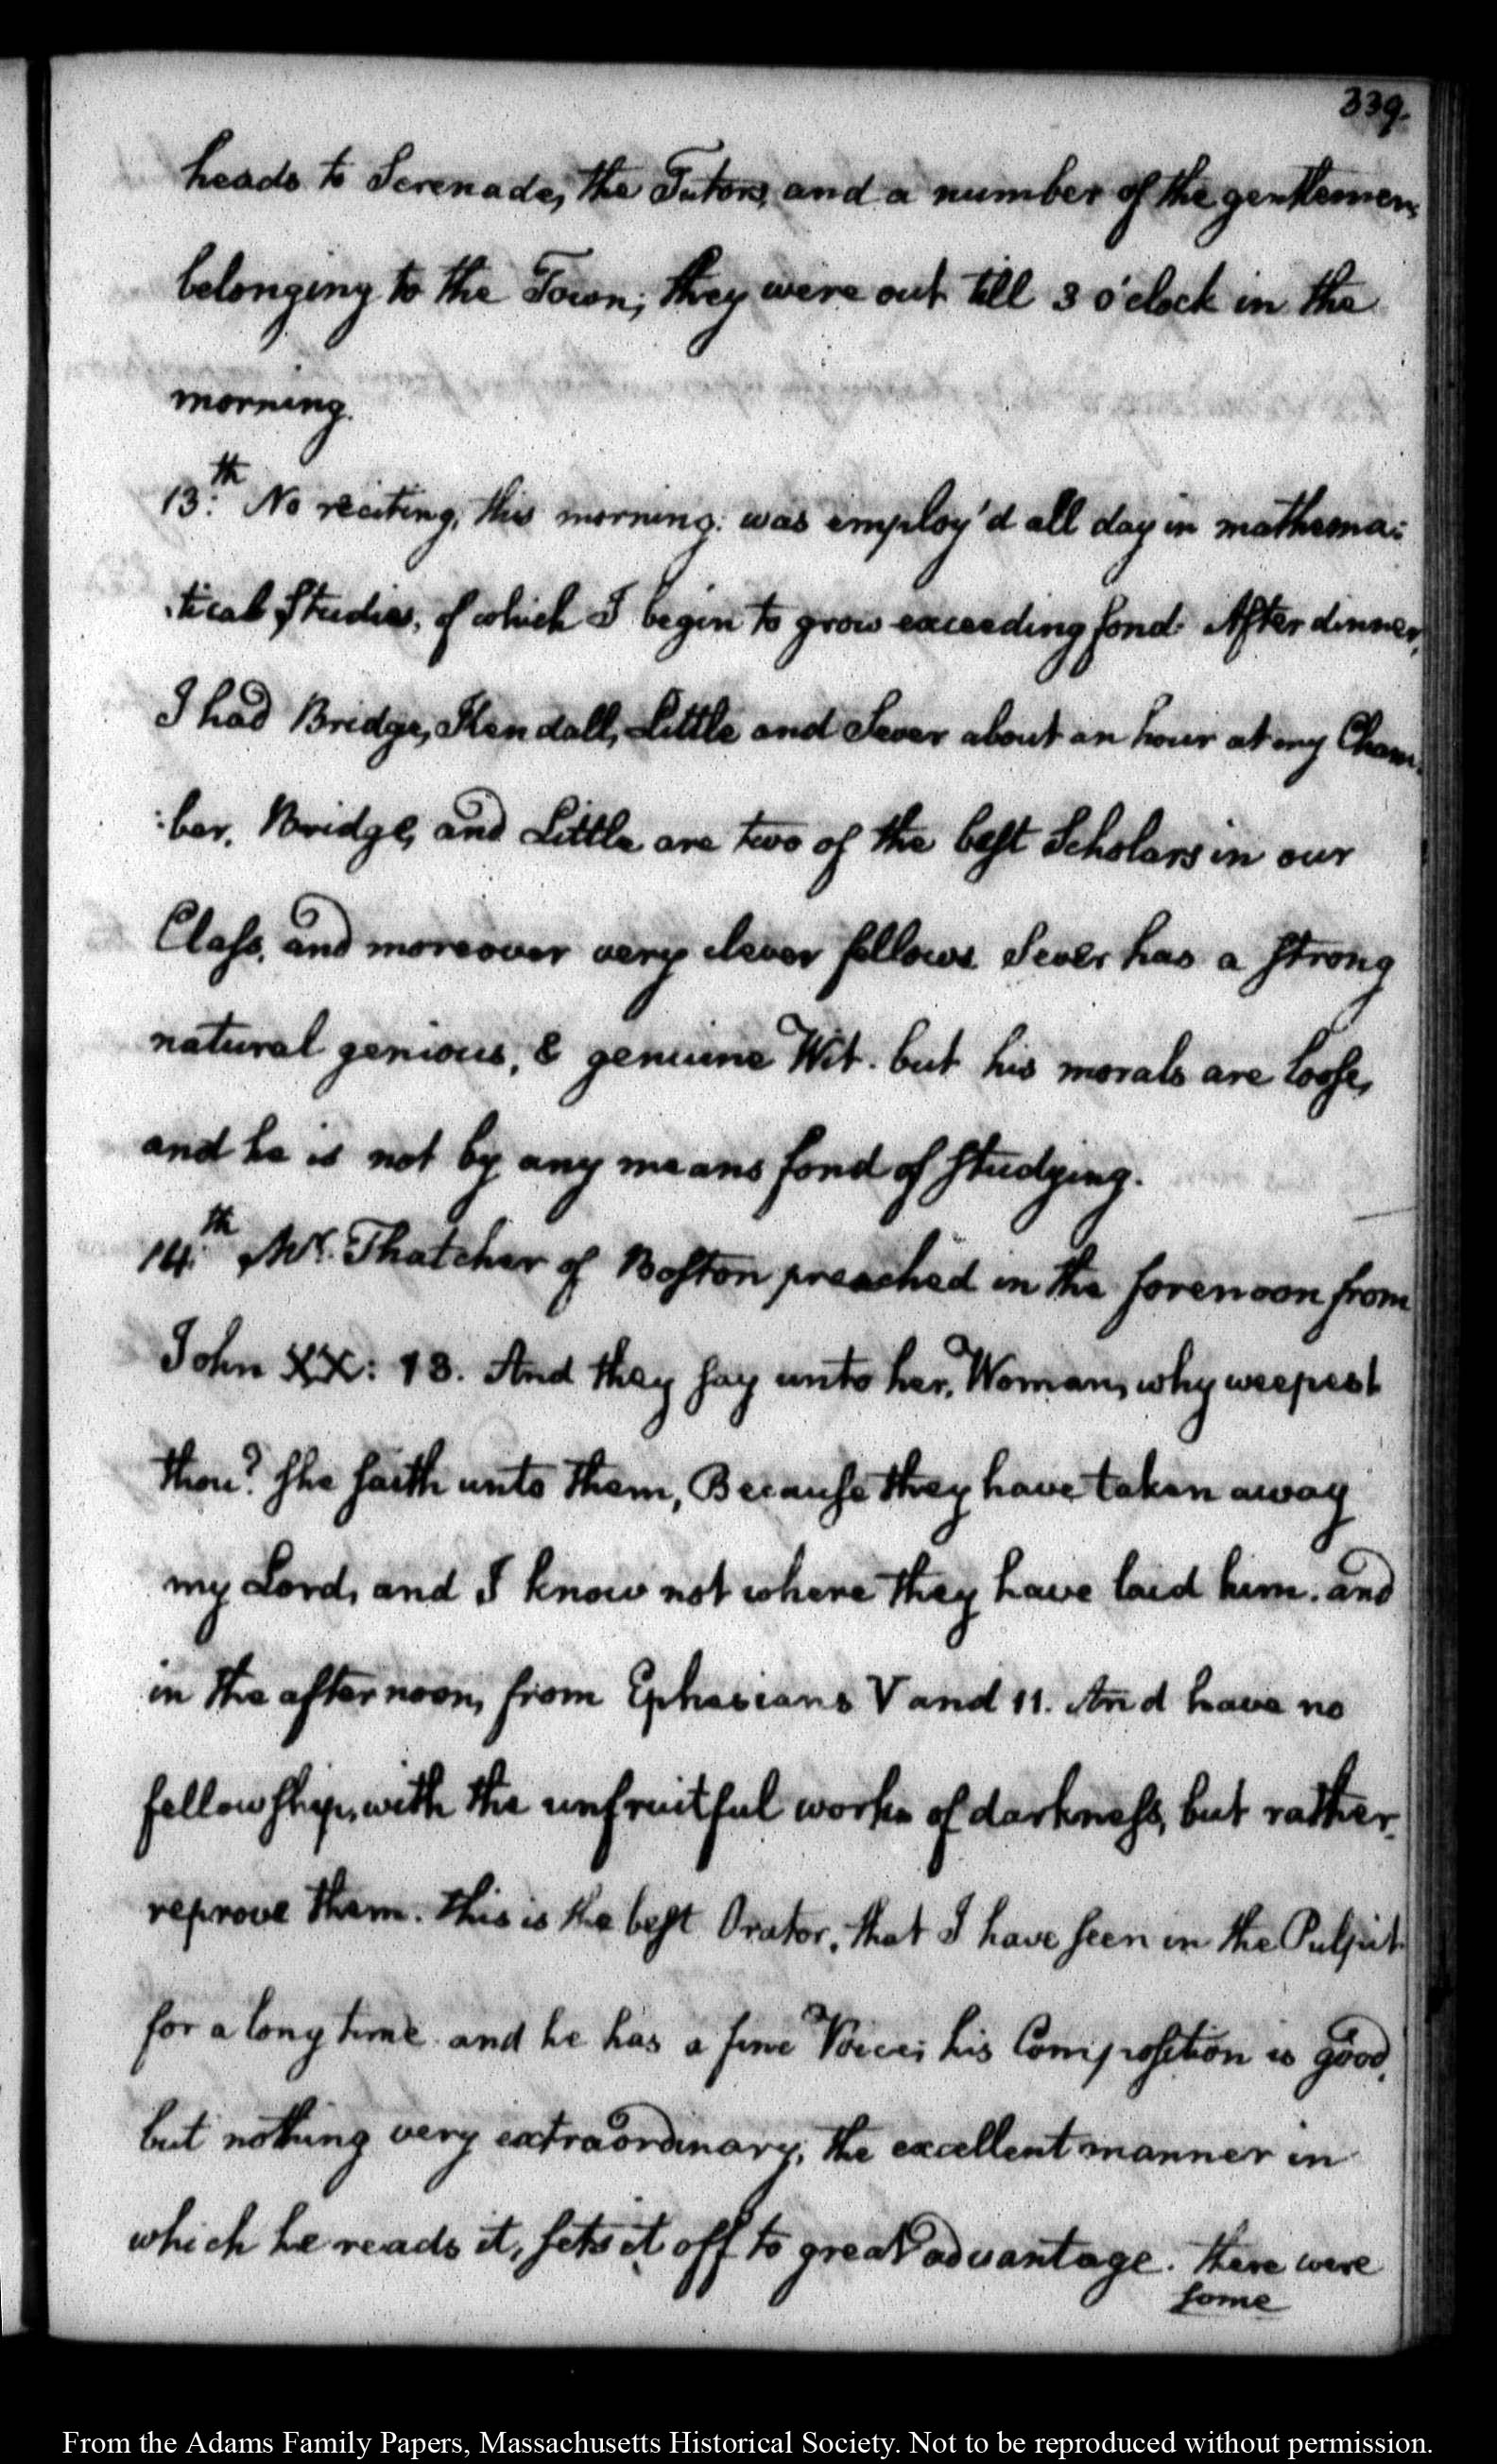 339.
heads to Serenade, the Tutors, and a number of the gentlemen,
belonging to the Town; they were out till 3 o'clock in the
morning.
13.th No reciting, this morning. was employ'd all day in mathema:
:tical Studies, of which I begin to grow exceeding fond. After dinner,
I had Bridge, Kendall, Little and Sever about an hour at my Cham:
:ber. Bridge, and Little are two of the best Scholars in our
Class, and moreover very clever fellows. Sever has a strong
natural genious, & genuine Wit. but his morals are loose,
and he is not by any means fond of studying.
14.th Mr. Thatcher of Boston preached in the forenoon from
John XX: 13. And they say unto her, Woman, why weepest
thou? She saith unto them, Because they have taken away
my Lord, and I know not where they have laid him. and
in the afternoon, from Ephesians V and 11. And have no
fellowship, with the unfruitful works of darkness, but rather
reprove them. This is the best Orator, that I have seen in the Pulpit
for a long time. and he has a fine Voice; his Composition is good,
but nothing very extraordinary; the excellent manner in
which he reads it, sets it off to great advantage. There were
some
From the Adams Family Papers, Massachusetts Historical Society. Not to be reproduced without permission.